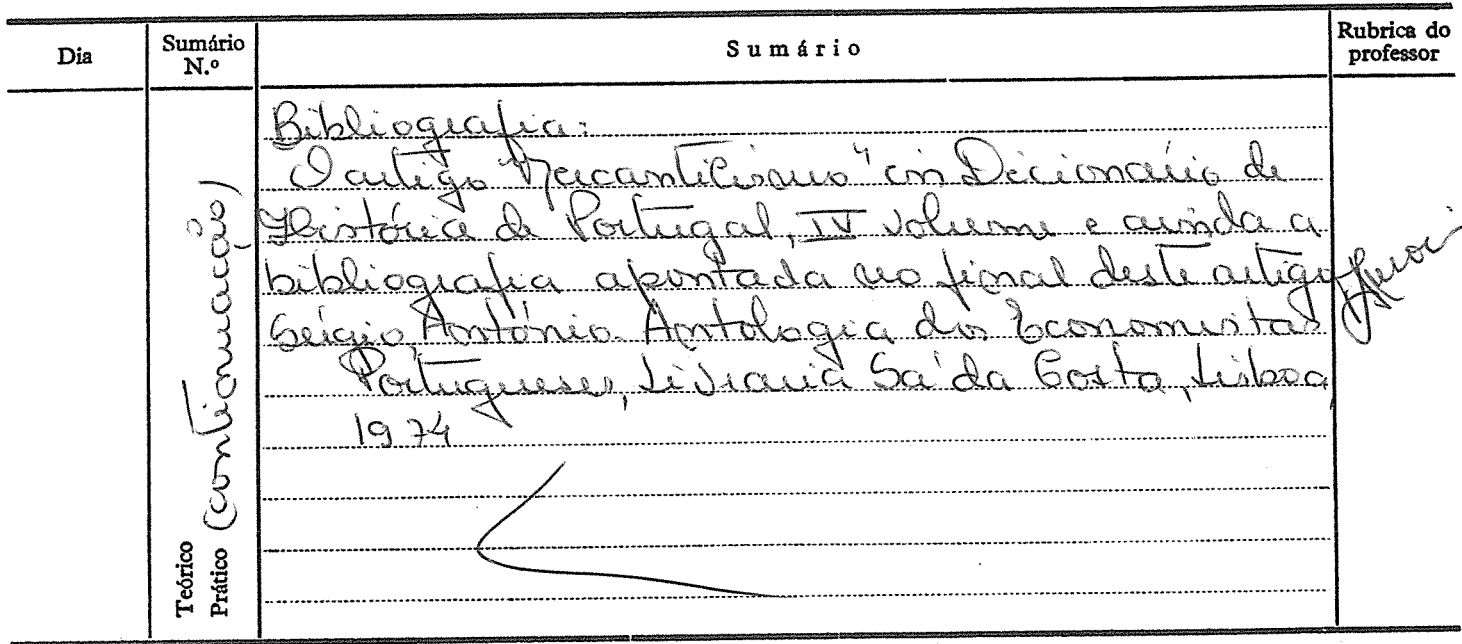 Dia
Sumário
N.º
Sumário
Rubrica do
professor
Teórico
Prático
(continuação)
Bibliografia:
O artigo Mercantilismo" in Dicionário de
História de Portugal, IV volume e ainda a
bibliografia apontada no final deste artigo
Sérgio, António. Antologia dos Economistas
Portugueses, Livraria Sá da Costa, Lisboa
1974